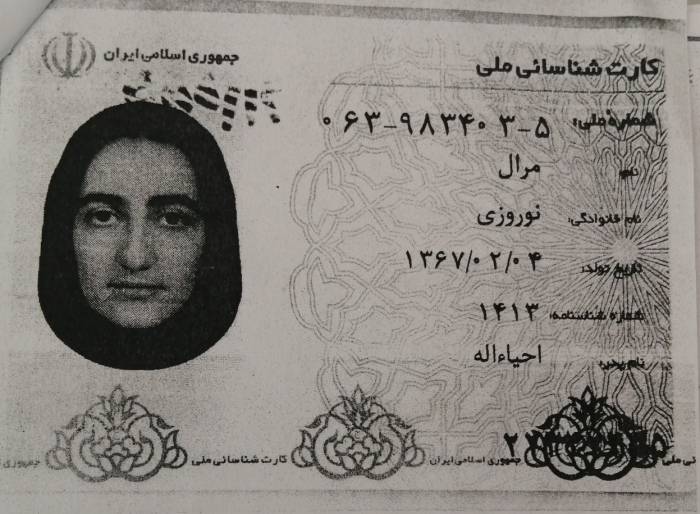 جمهوری اسلامی ایران
کارت شناسائی ملی
شماره ملی: ۰۶۳-۹۸۳۴۰۳-۵
نام: مرال
نام خانوادگی: نوروزی
تاریخ تولد: ۱۳۶۷/۰۲/۰۴
شماره شناسنامه: ۱۴۱۳
نام پدر: احیاءاله
کارت شناسائی ملی
جمهوری اسلامی ایران